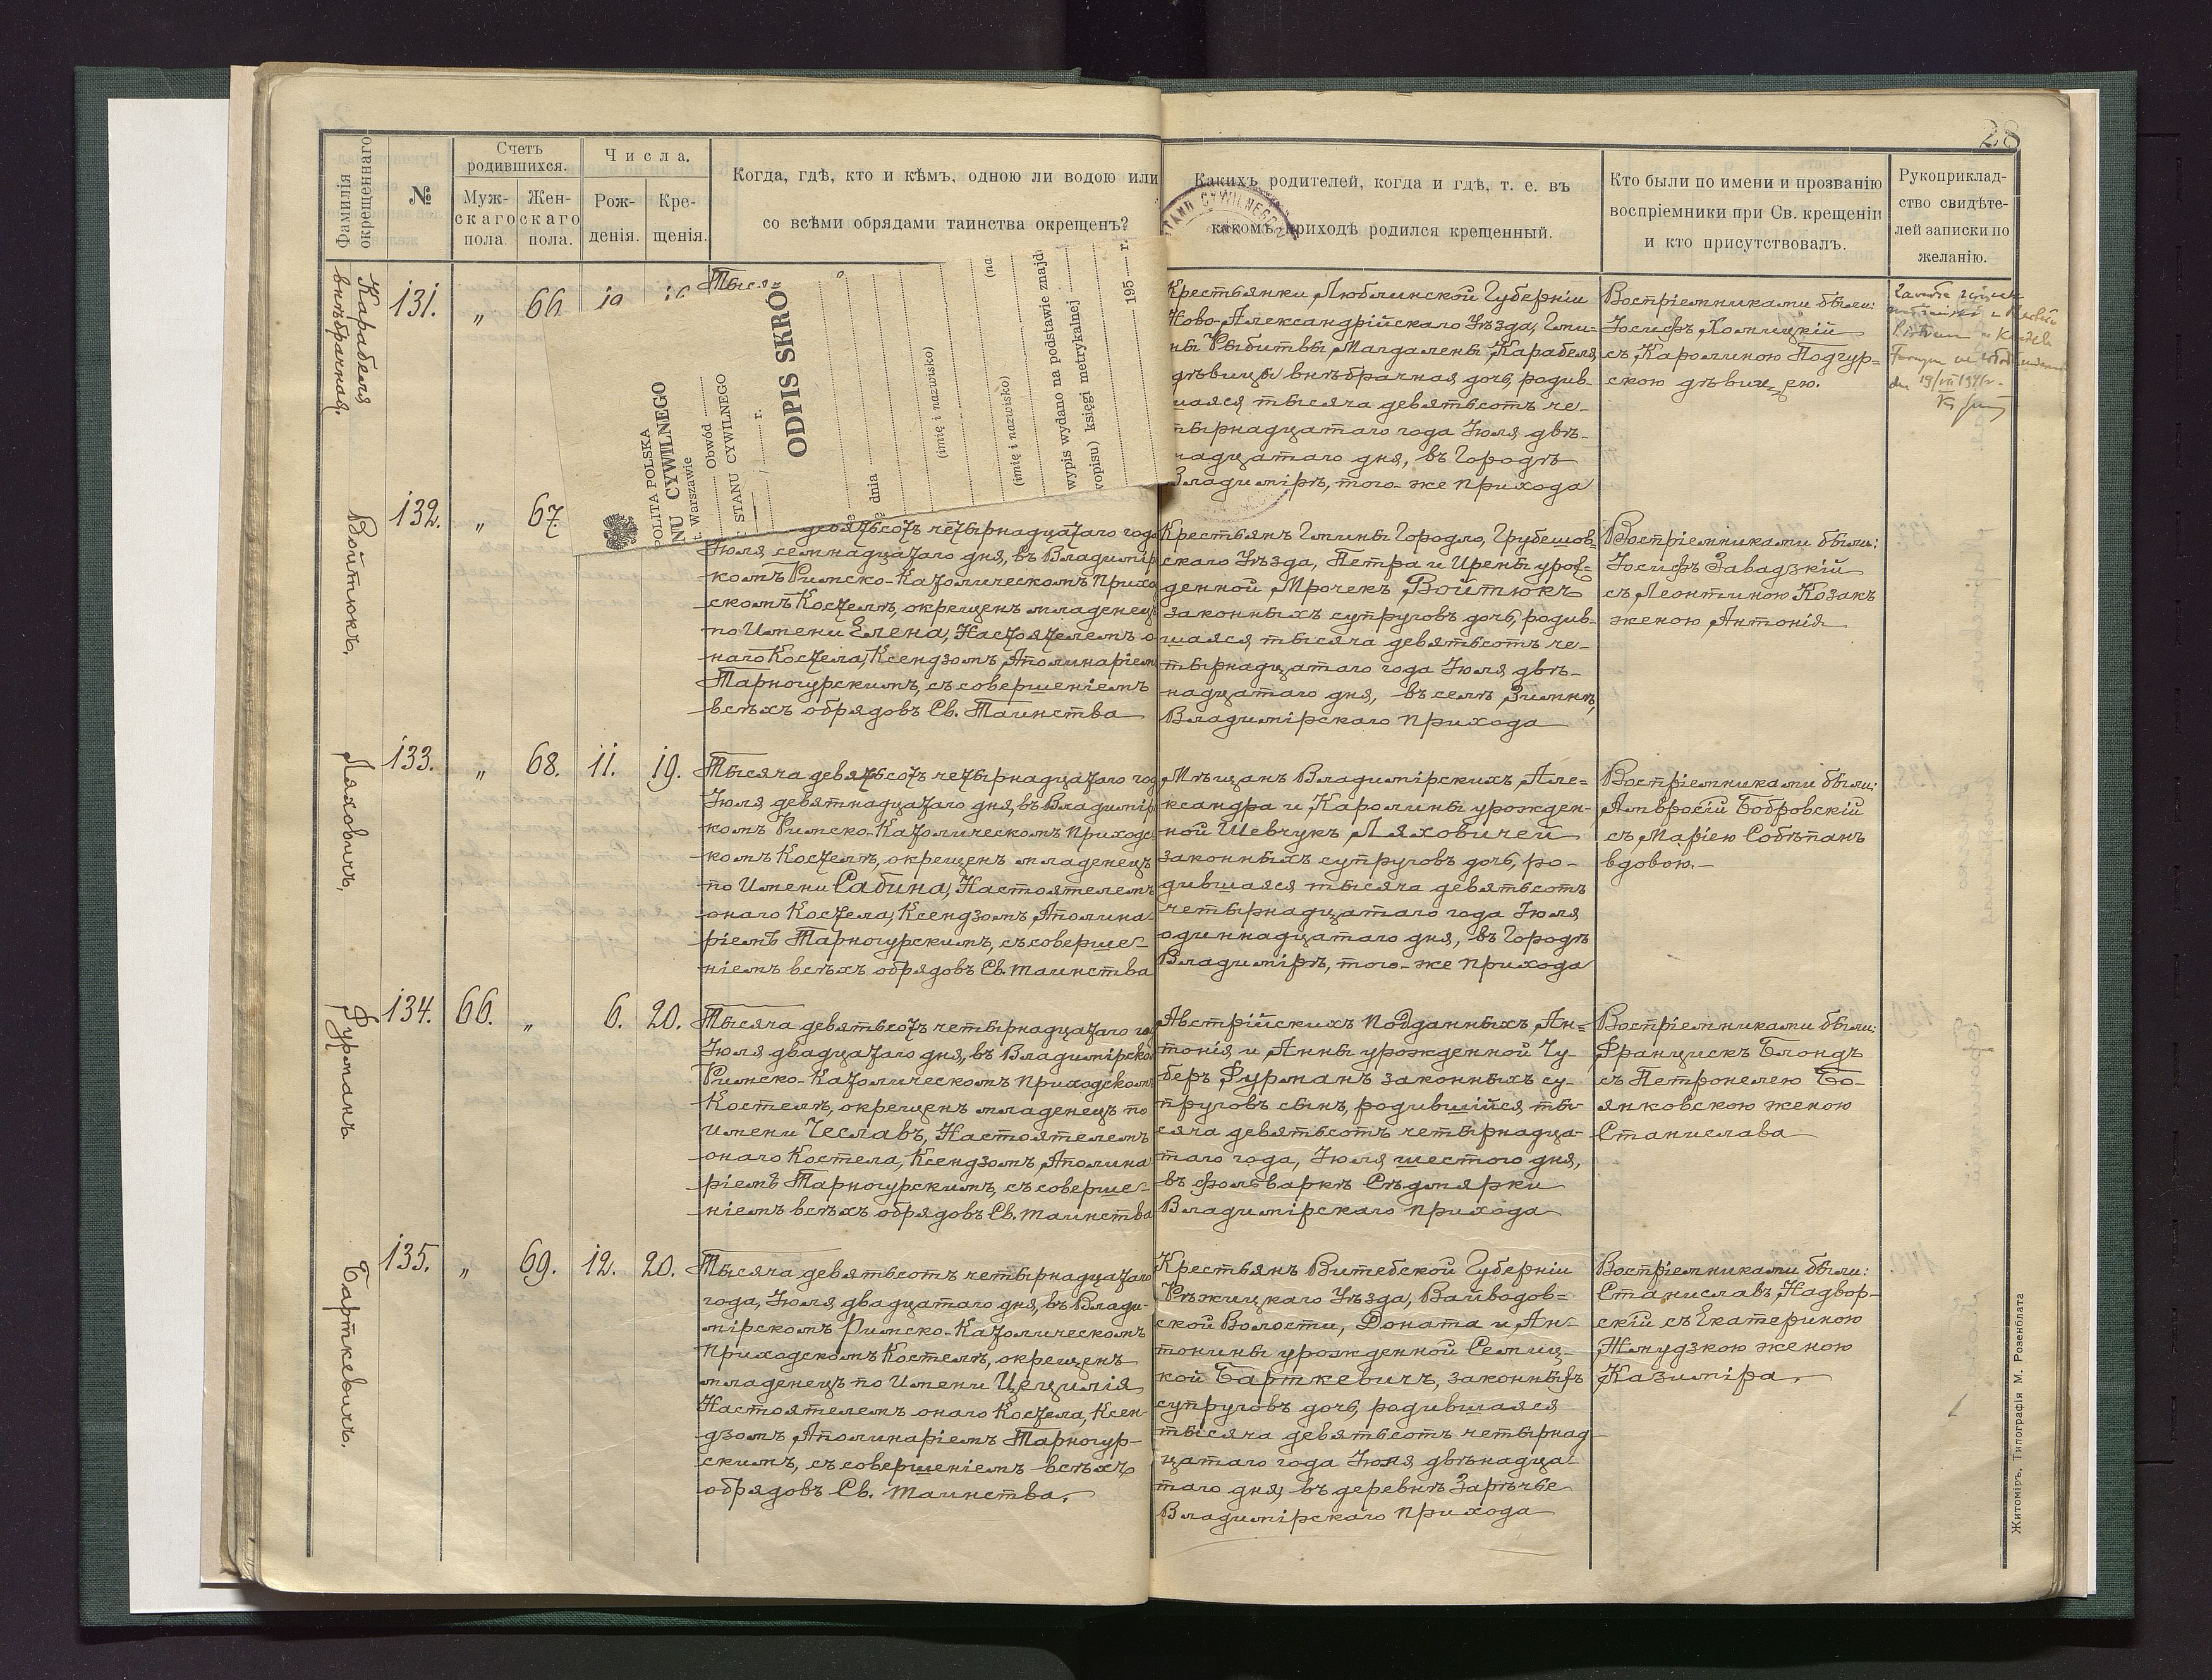 28
Фамилія
окрещеннаго
№
Счетъ
родившихся.
Муж-
скаго
пола.
Жен-
скаго
пола.
Числа.
Рож-
денія.
Кре-
щенія.
Когда, гдѣ, кто и кѣмъ, одною ли водою или
со всѣми обрядами таинства окрещенъ?
Какихъ родителей, когда и гдѣ, т. е. въ
какомъ приходѣ родился крещенный.
Кто были по имени и прозванію
воспріемники при Св. крещеніи
и кто присутствовалъ.
Рукоприклад-
ство свидѣте-
лей записки по
желанію.
STANU CYWILNEGO
Карабеля
внѣбрачная.
131.
„
66
Тыся=
POLITA POLSKA
NU CYWILNEGO
t. Warszawie
Obwód
STANU CYWILNEGO
r.
ODPIS SKRÓ
dnia
(imię i nazwisko)
(imię i nazwisko)
(na
wypis wydano na podstawie znajd
opisu) księgi metrykalnej
195 r.
Крестьянки Люблинской Губерніи
Ново-Александрійскаго Уѣзда, Гми-
ны Рыбитвы, Магдалены Карабеля,
дѣвицы внѣбрачная дочь, родив-
шаяся тысяча девятьсотъ че-
тырнадцатаго года Іюля двѣ-
надцатаго дня, въ Городѣ
Владимірѣ, того-же прихода
Воспріемниками были:
Іосифъ Хомицкій
съ Каролиною Подгур=
скою дѣвицею.
dn. 19/VII 1946 r.
Войтюкъ.
132.
„
67
девятьсотъ четырнадцатаго года
Іюля семнадцатаго дня, въ Владимір
комъ Римско-Католическомъ Прихо
скомъ Костелѣ, окрещенъ младенецъ
по Имени Елена, Настоятелемъ о
наго Костела, Ксендзомъ Аполинаріем
Тарногурскимъ, съ совершеніемъ
всѣхъ обрядовъ Св. Таинства
Крестьянъ Гмины Городло, Грубешов=
скаго Уѣзда, Петра и Ирены урож-
денной Мрочекъ Войтюкъ
законныхъ супруговъ дочь, родив-
шаяся тысяча девятьсотъ че-
тырнадцатаго года Іюля двѣ-
надцатаго дня, въ селѣ Зимнѣ,
Владимірскаго прихода
Воспріемниками были:
Іосифъ Завадзкій
съ Леонтиною Козакъ
женою Антонія
Ляховичъ.
133.
„
68.
11.
19.
Тысяча девятьсотъ четырнадцатаго год
Іюля девятнадцатаго дня, въ Владимір
комъ Римско-Католическомъ Приходс
комъ Костелѣ, окрещенъ младенецъ
по Имени Сабина, Настоятелемъ
онаго Костела, Ксендзомъ Аполина-
ріемъ Тарногурскимъ, съ соверше-
ніемъ всѣхъ обрядовъ Св. таинства
Мѣщанъ Владимірскихъ, Але=
ксандра и Каролины урожден-
ной Шевчукъ Ляховичей
законныхъ супруговъ дочь, ро-
дившаяся тысяча девятьсотъ
четырнадцатаго года Іюля
одиннадцатаго дня, въ Городѣ
Владимірѣ, того-же прихода
Воспріемниками были:
Амвросій Бобровскій
съ Маріею Собѣпанъ
вдовою.-
Фурманъ
134.
66.
„
6.
20.
Тысяча девятьсотъ четырнадцатаго го
Іюля двадцатаго дня, въ Владимірско
Римско-Католическомъ Приходскомъ
Костелѣ, окрещенъ младенецъ по
имени Чеславъ, Настоятелемъ
онаго Костела, Ксендзомъ Аполина
ріемъ Тарногурскимъ, съ соверше-
ніемъ всѣхъ обрядовъ Св. таинства
Австрійскихъ Подданныхъ, Ан=
тонія и Анны урожденной Гу-
беръ Фурманъ законныхъ су-
пруговъ сынъ, родившійся ты-
сяча девятьсотъ четырнадца-
таго года, Іюля шестого дня,
въ фольваркѣ Сѣдмярки
Владимірскаго прихода
Воспріемниками были:
Францискъ Блондъ
съ Петронелею Бо-
янковскою женою
Станислава
Барткевичъ.
135.
„
69.
12.
20.
Тысяча девятьсотъ четырнадцатаго
года, Іюля двадцатаго дня, въ Влади-
мірскомъ Римско-Католическомъ
Приходскомъ Костелѣ, окрещенъ
младенецъ по Имени Цецилія
Настоятелемъ онаго Костела, Ксен-
дзомъ Аполинаріемъ Тарногур-
скимъ, съ совершеніемъ всѣхъ
обрядовъ Св. таинства.
Крестьянъ Витебской Губерніи
Рѣжицкаго Уѣзда, Вайводов=
ской Волости, Доната и Ан-
тонины урожденной Семиц-
кой Барткевичъ, законныхъ
супруговъ дочь, родившаяся
тысяча девятьсотъ четырнад-
цатаго года Іюля двѣнадца-
таго дня, въ деревнѣ Зарѣчье
Владимірскаго прихода
Воспріемниками были:
Станиславъ Надвор-
скій съ Екатериною
Жмудзкою женою
Казиміра.
Житоміръ, Типографія М. Розенблата